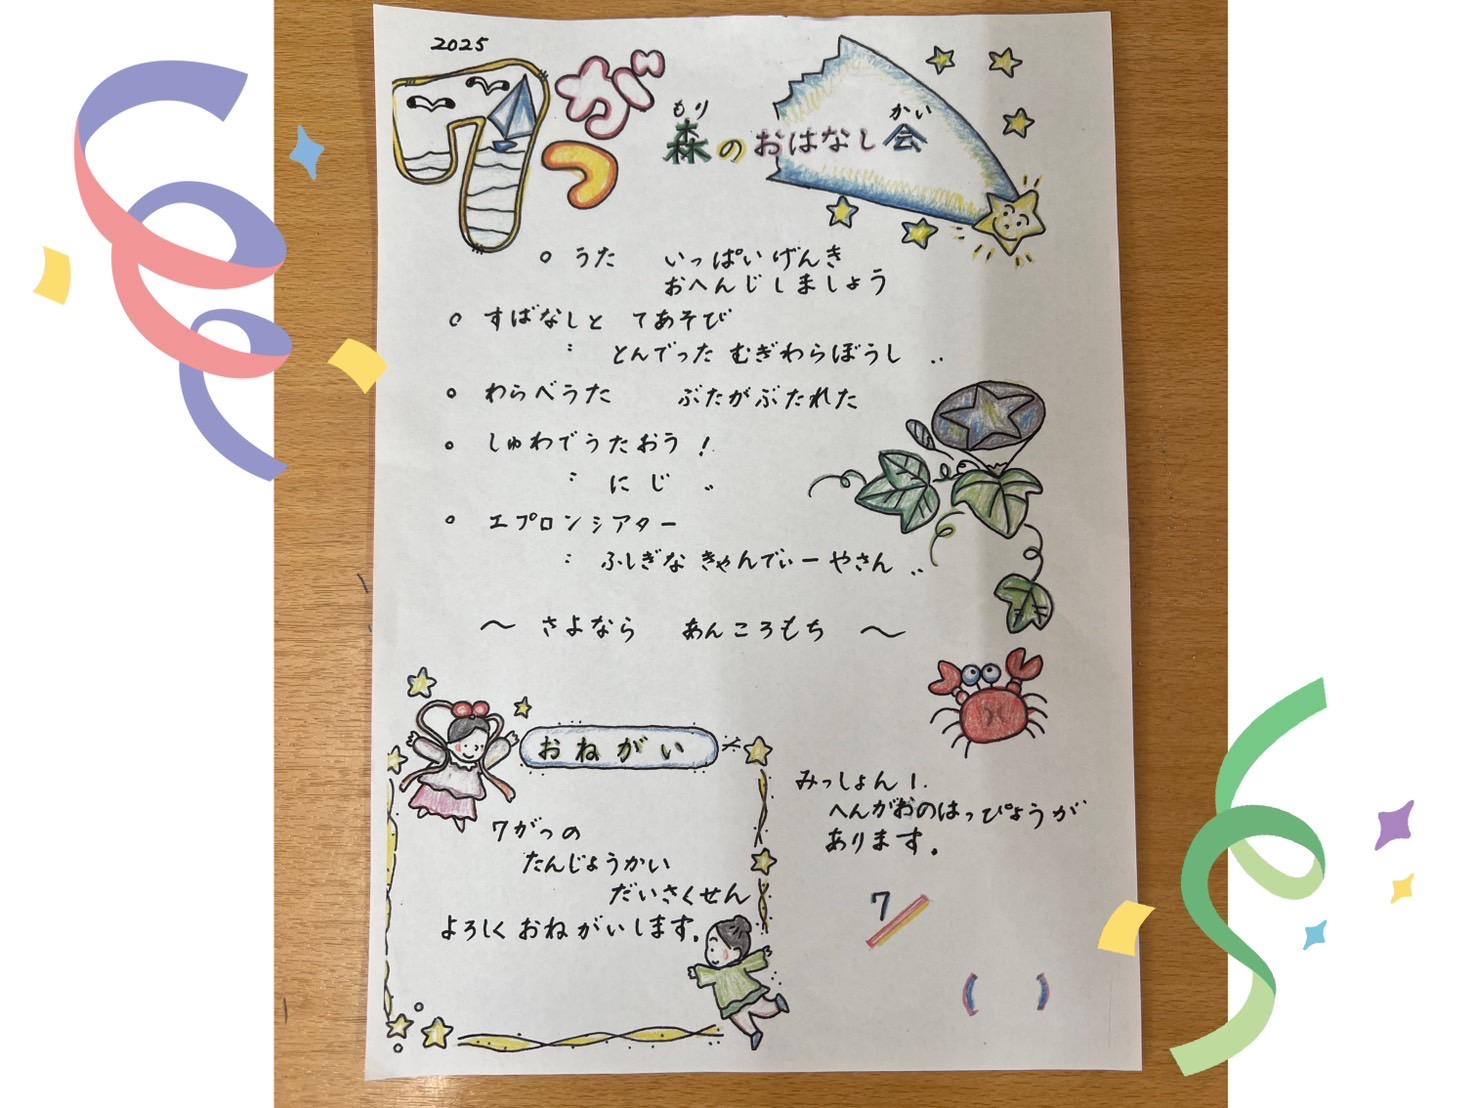 2025
7がつ
もり かい
森のおはなし会
○ うた いっぱいげんき
おへんじしましょう
○ すばなしと てあそび
〝 とんでった むぎわらぼうし 〟
○ わらべうた ぶたがぶたれた
○ しゅわでうたおう!
〝 にじ 〟
○ エプロンシアター
〝 ふしぎな きゃんでぃーやさん 〟
〜 さよなら あんころもち 〜
おねがい
7がつの
たんじょうかい
だいさくせん
よろしくおねがいします。
みっしょん1.
へんがおのはっぴょうが
あります。
7/
( )